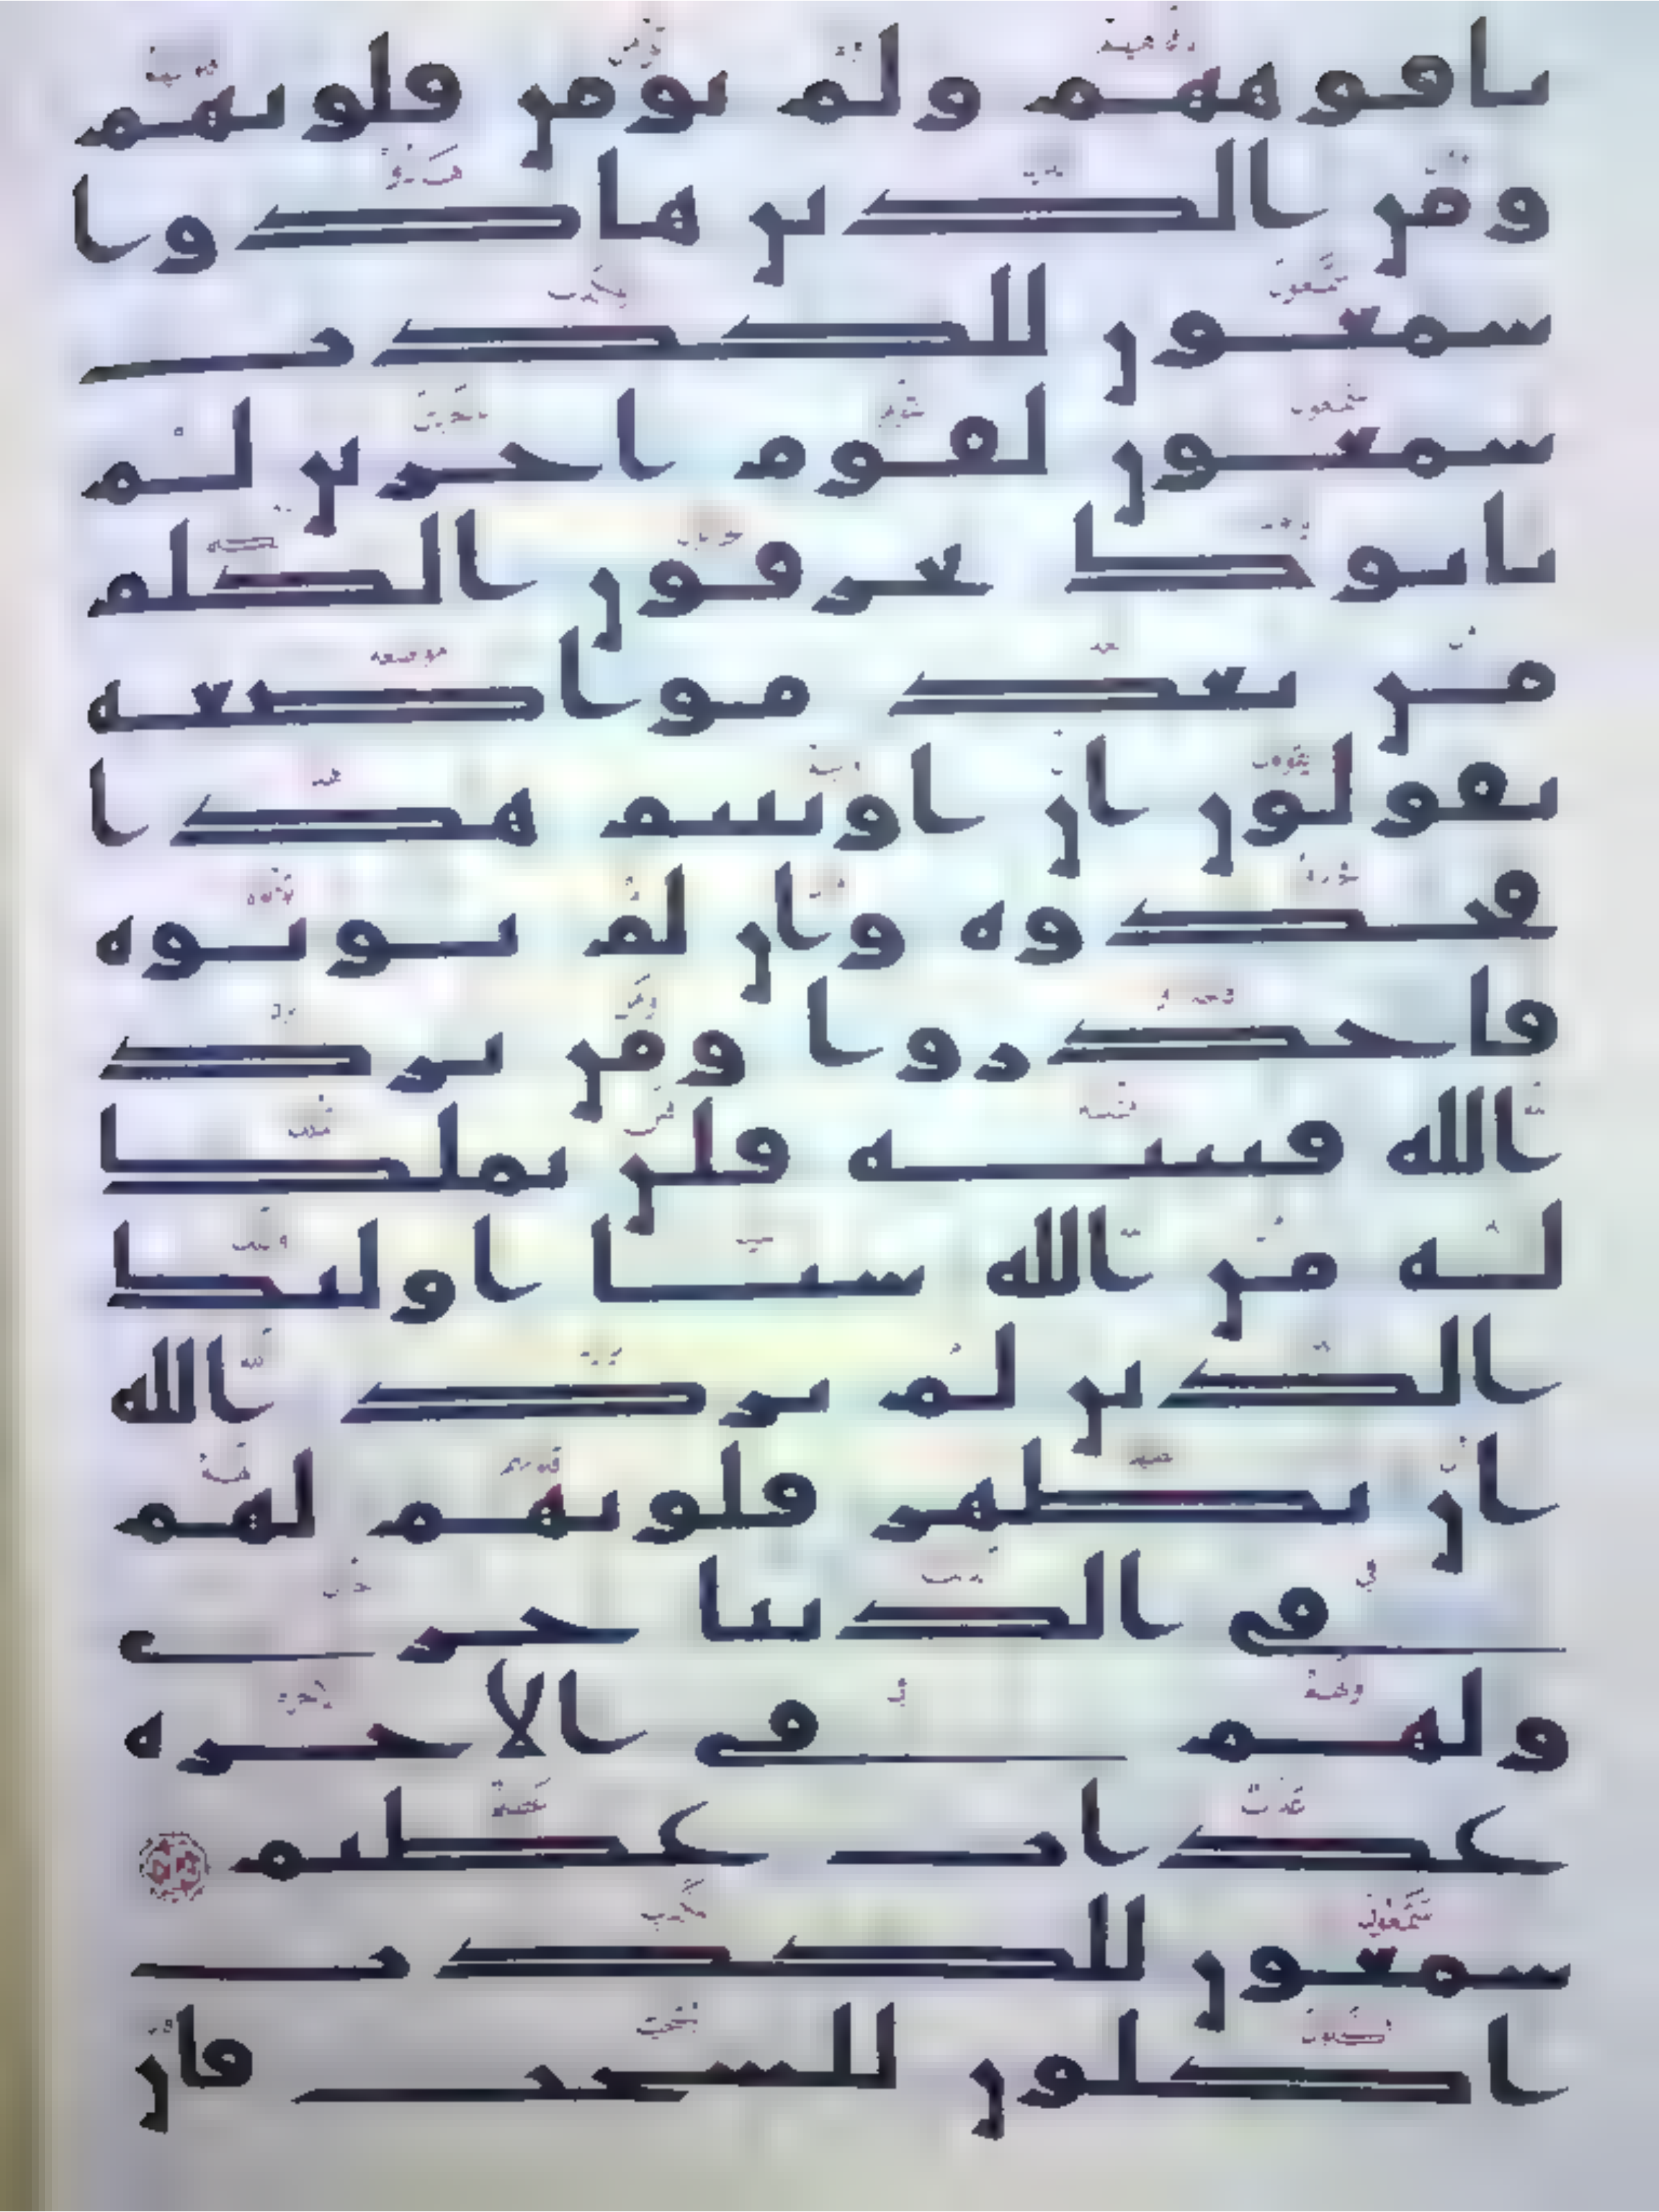 بافوههم ولم تومن قلوبهم
ومن الذين هادوا
سمعون للكذب
سمعون لقوم اخرين لم
ياتوك يحرفون الكلم
من بعد مواضعه
يقولون ان اوتيتم هذا
فخذوه وان لم توتوه
فاحذروا ومن يرد
الله فتنته فلن تملك
له من الله شيا اوليك
الذين لم يرد الله
ان يطهر قلوبهم لهم
في الدنيا خزي
ولهم في الاخره
عذاب عظيم
سمعون للكذب
اكلون للسحت فان